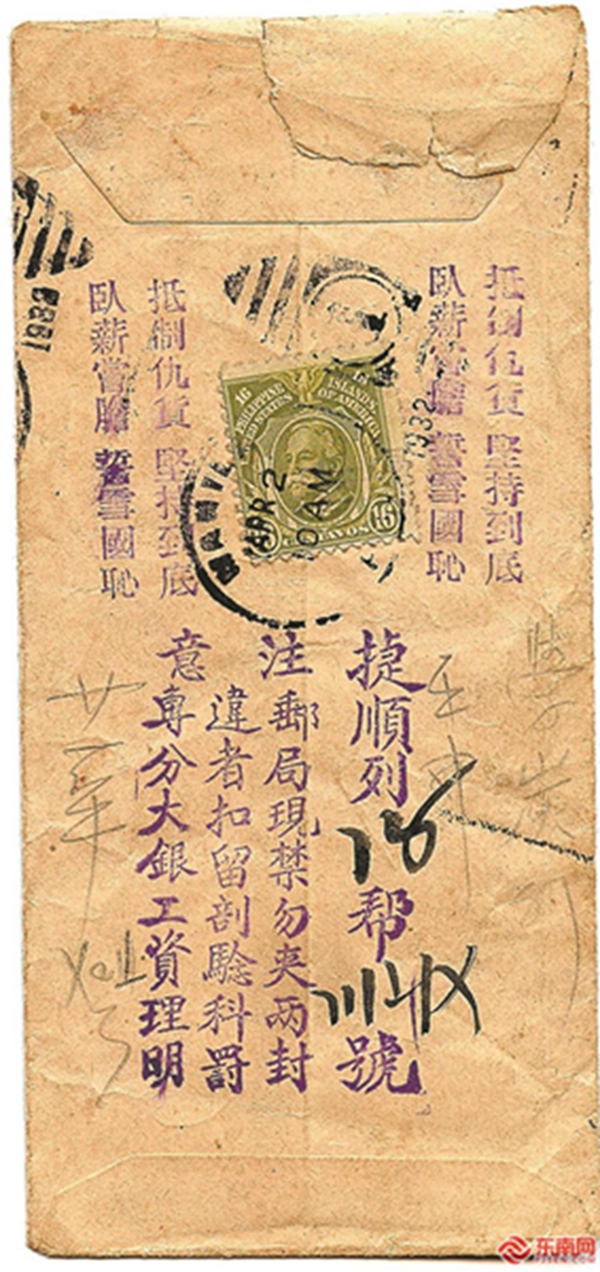 抵制仇貨 堅持到底
臥薪嘗膽 誓雪國恥
抵制仇貨 堅持到底
臥薪嘗膽 誓雪國恥
16
PHILIPPINE ISLANDS
UNITED STATES OF AMERICA
16 CENTAVOS 16
APR 2
AM
捷順列 幇 號
注郵局現禁勿夾两封
違者扣留剖騐科罰
意專分大銀工資理明
东南网